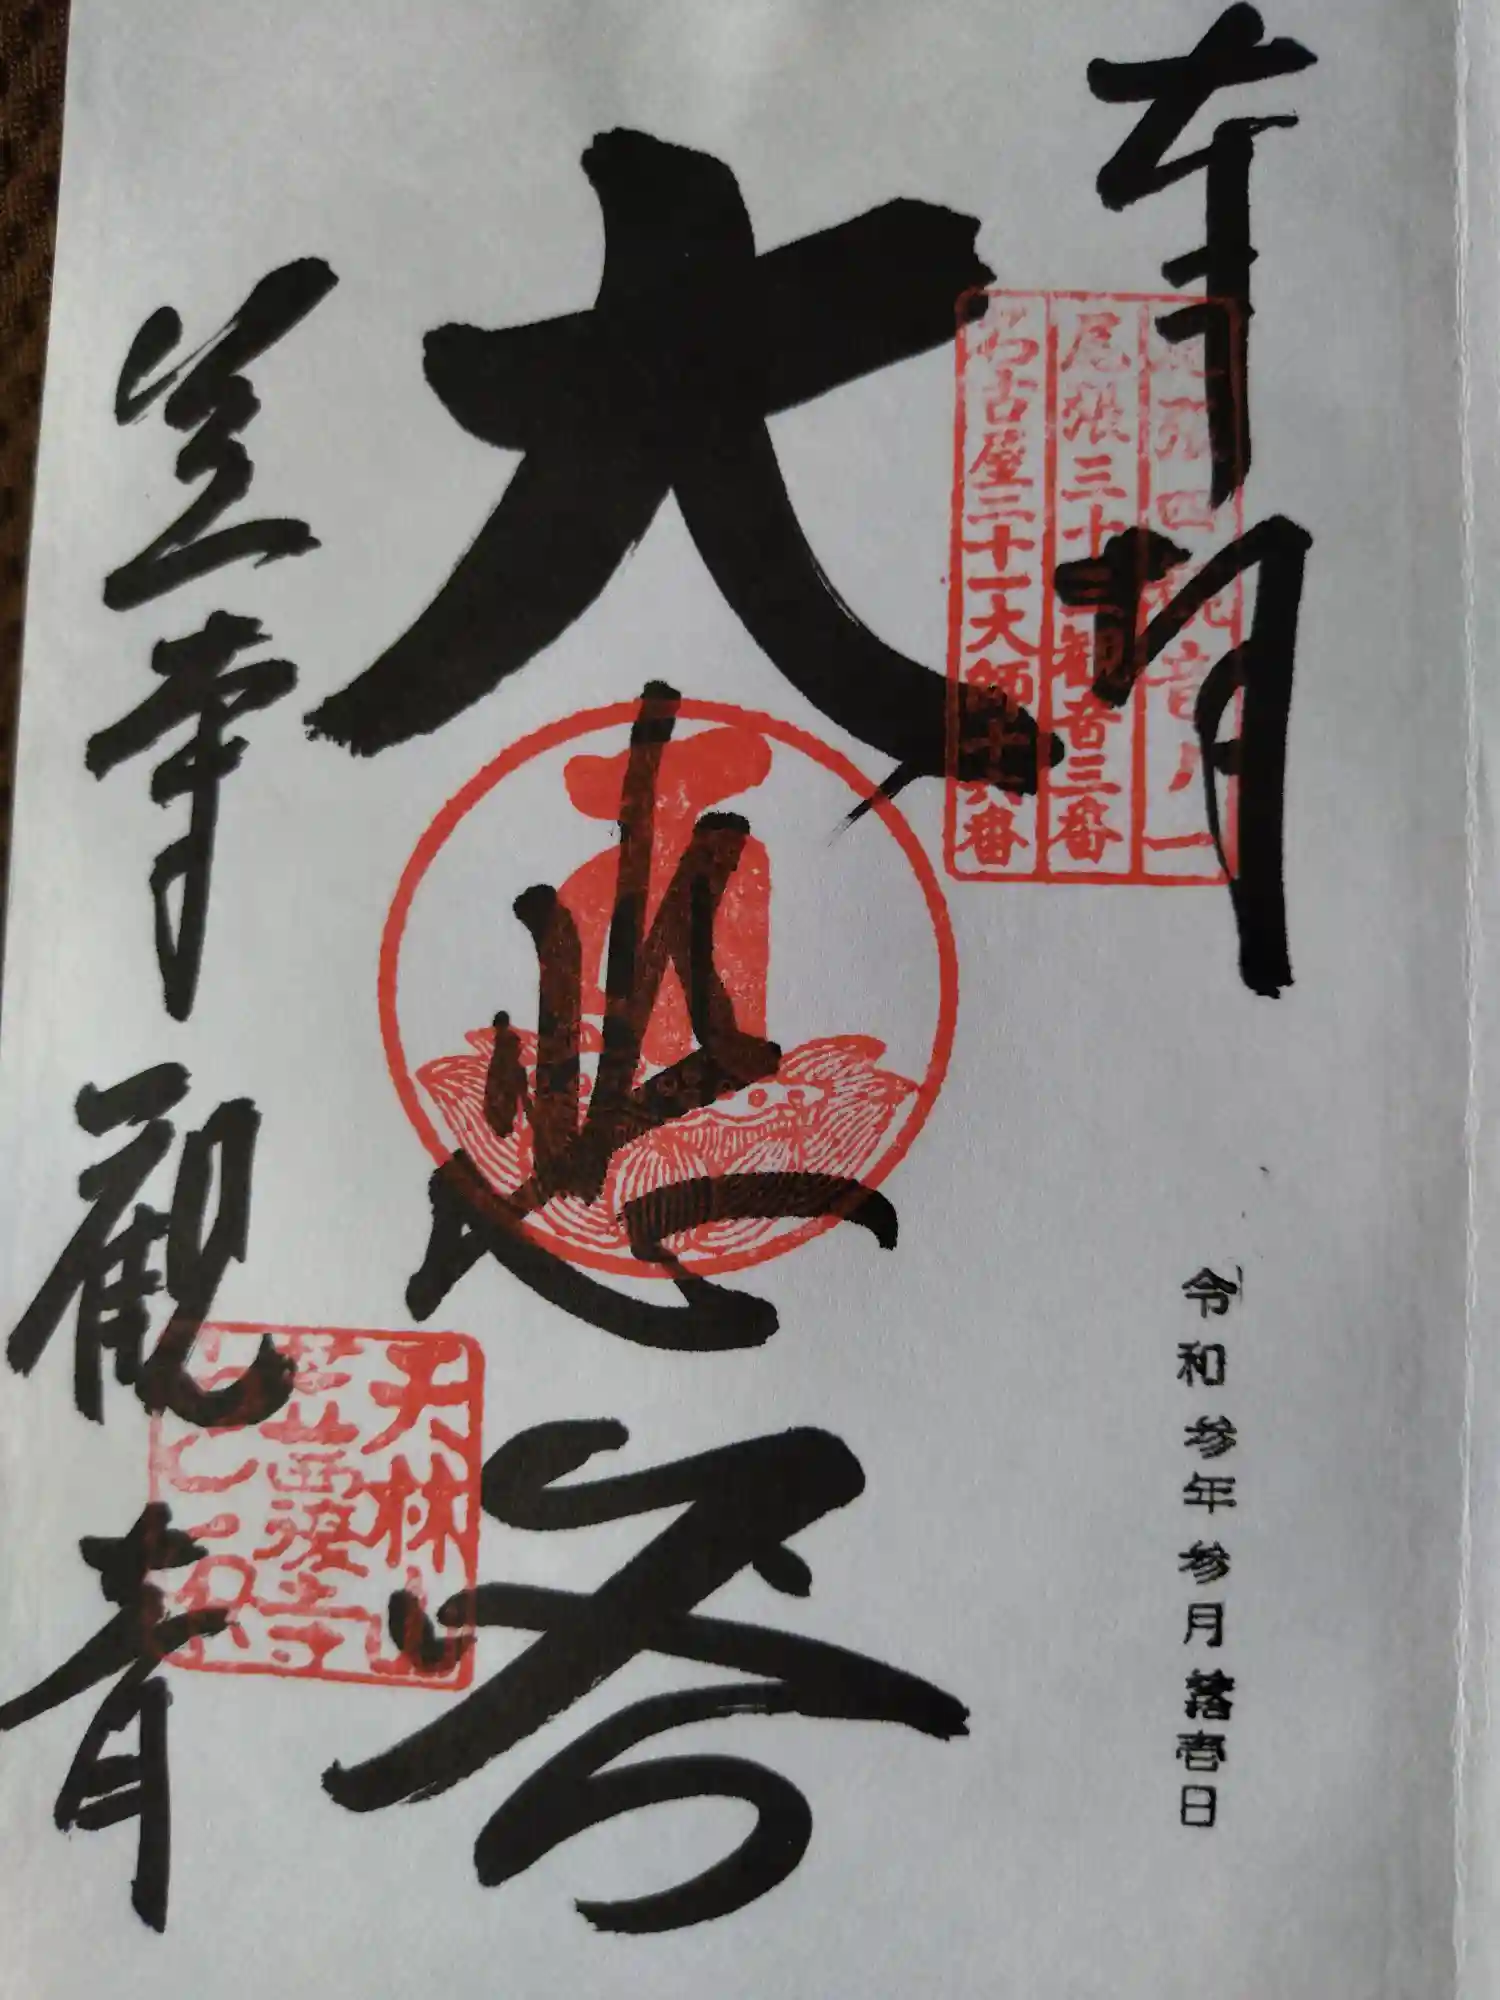 奉拝
尾張四観音ノ一
尾張三十三観音三番
名古屋二十一大師十六番
令和参年参月壱日
大悲閣
笠寺觀音
天林山
笠覆寺